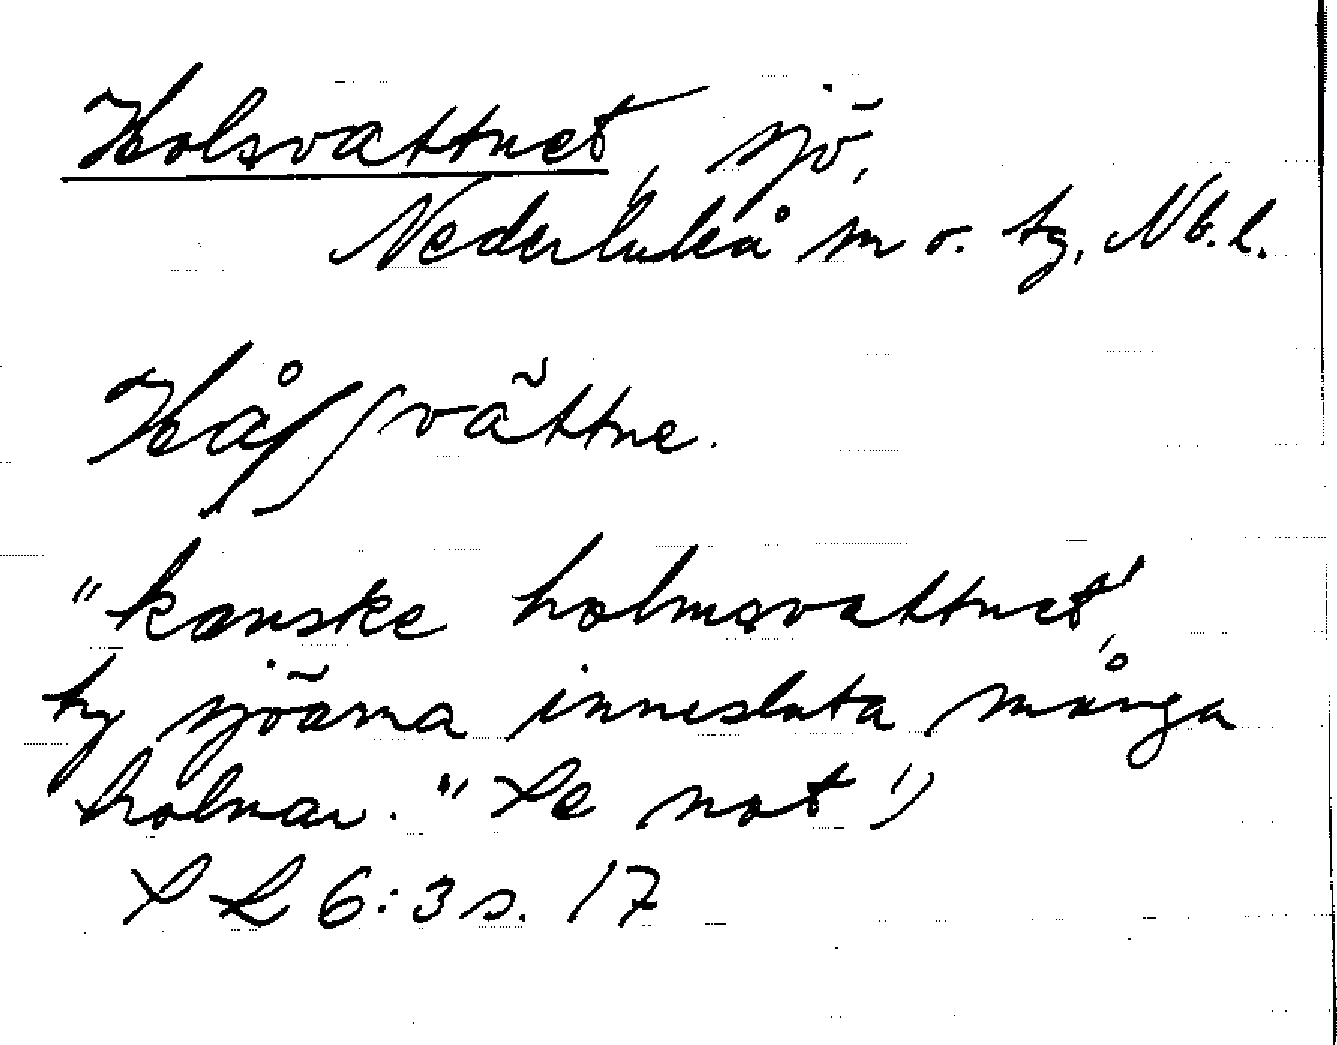 Holsvattnet, sjö,
Nederluleå sn o. tg, Nb. l.
Håʃʃvãttne.
"kanske holmsvattnet,
ty sjöarna innesluta många
holmar." Se not 1)
SL 6:3 s. 17